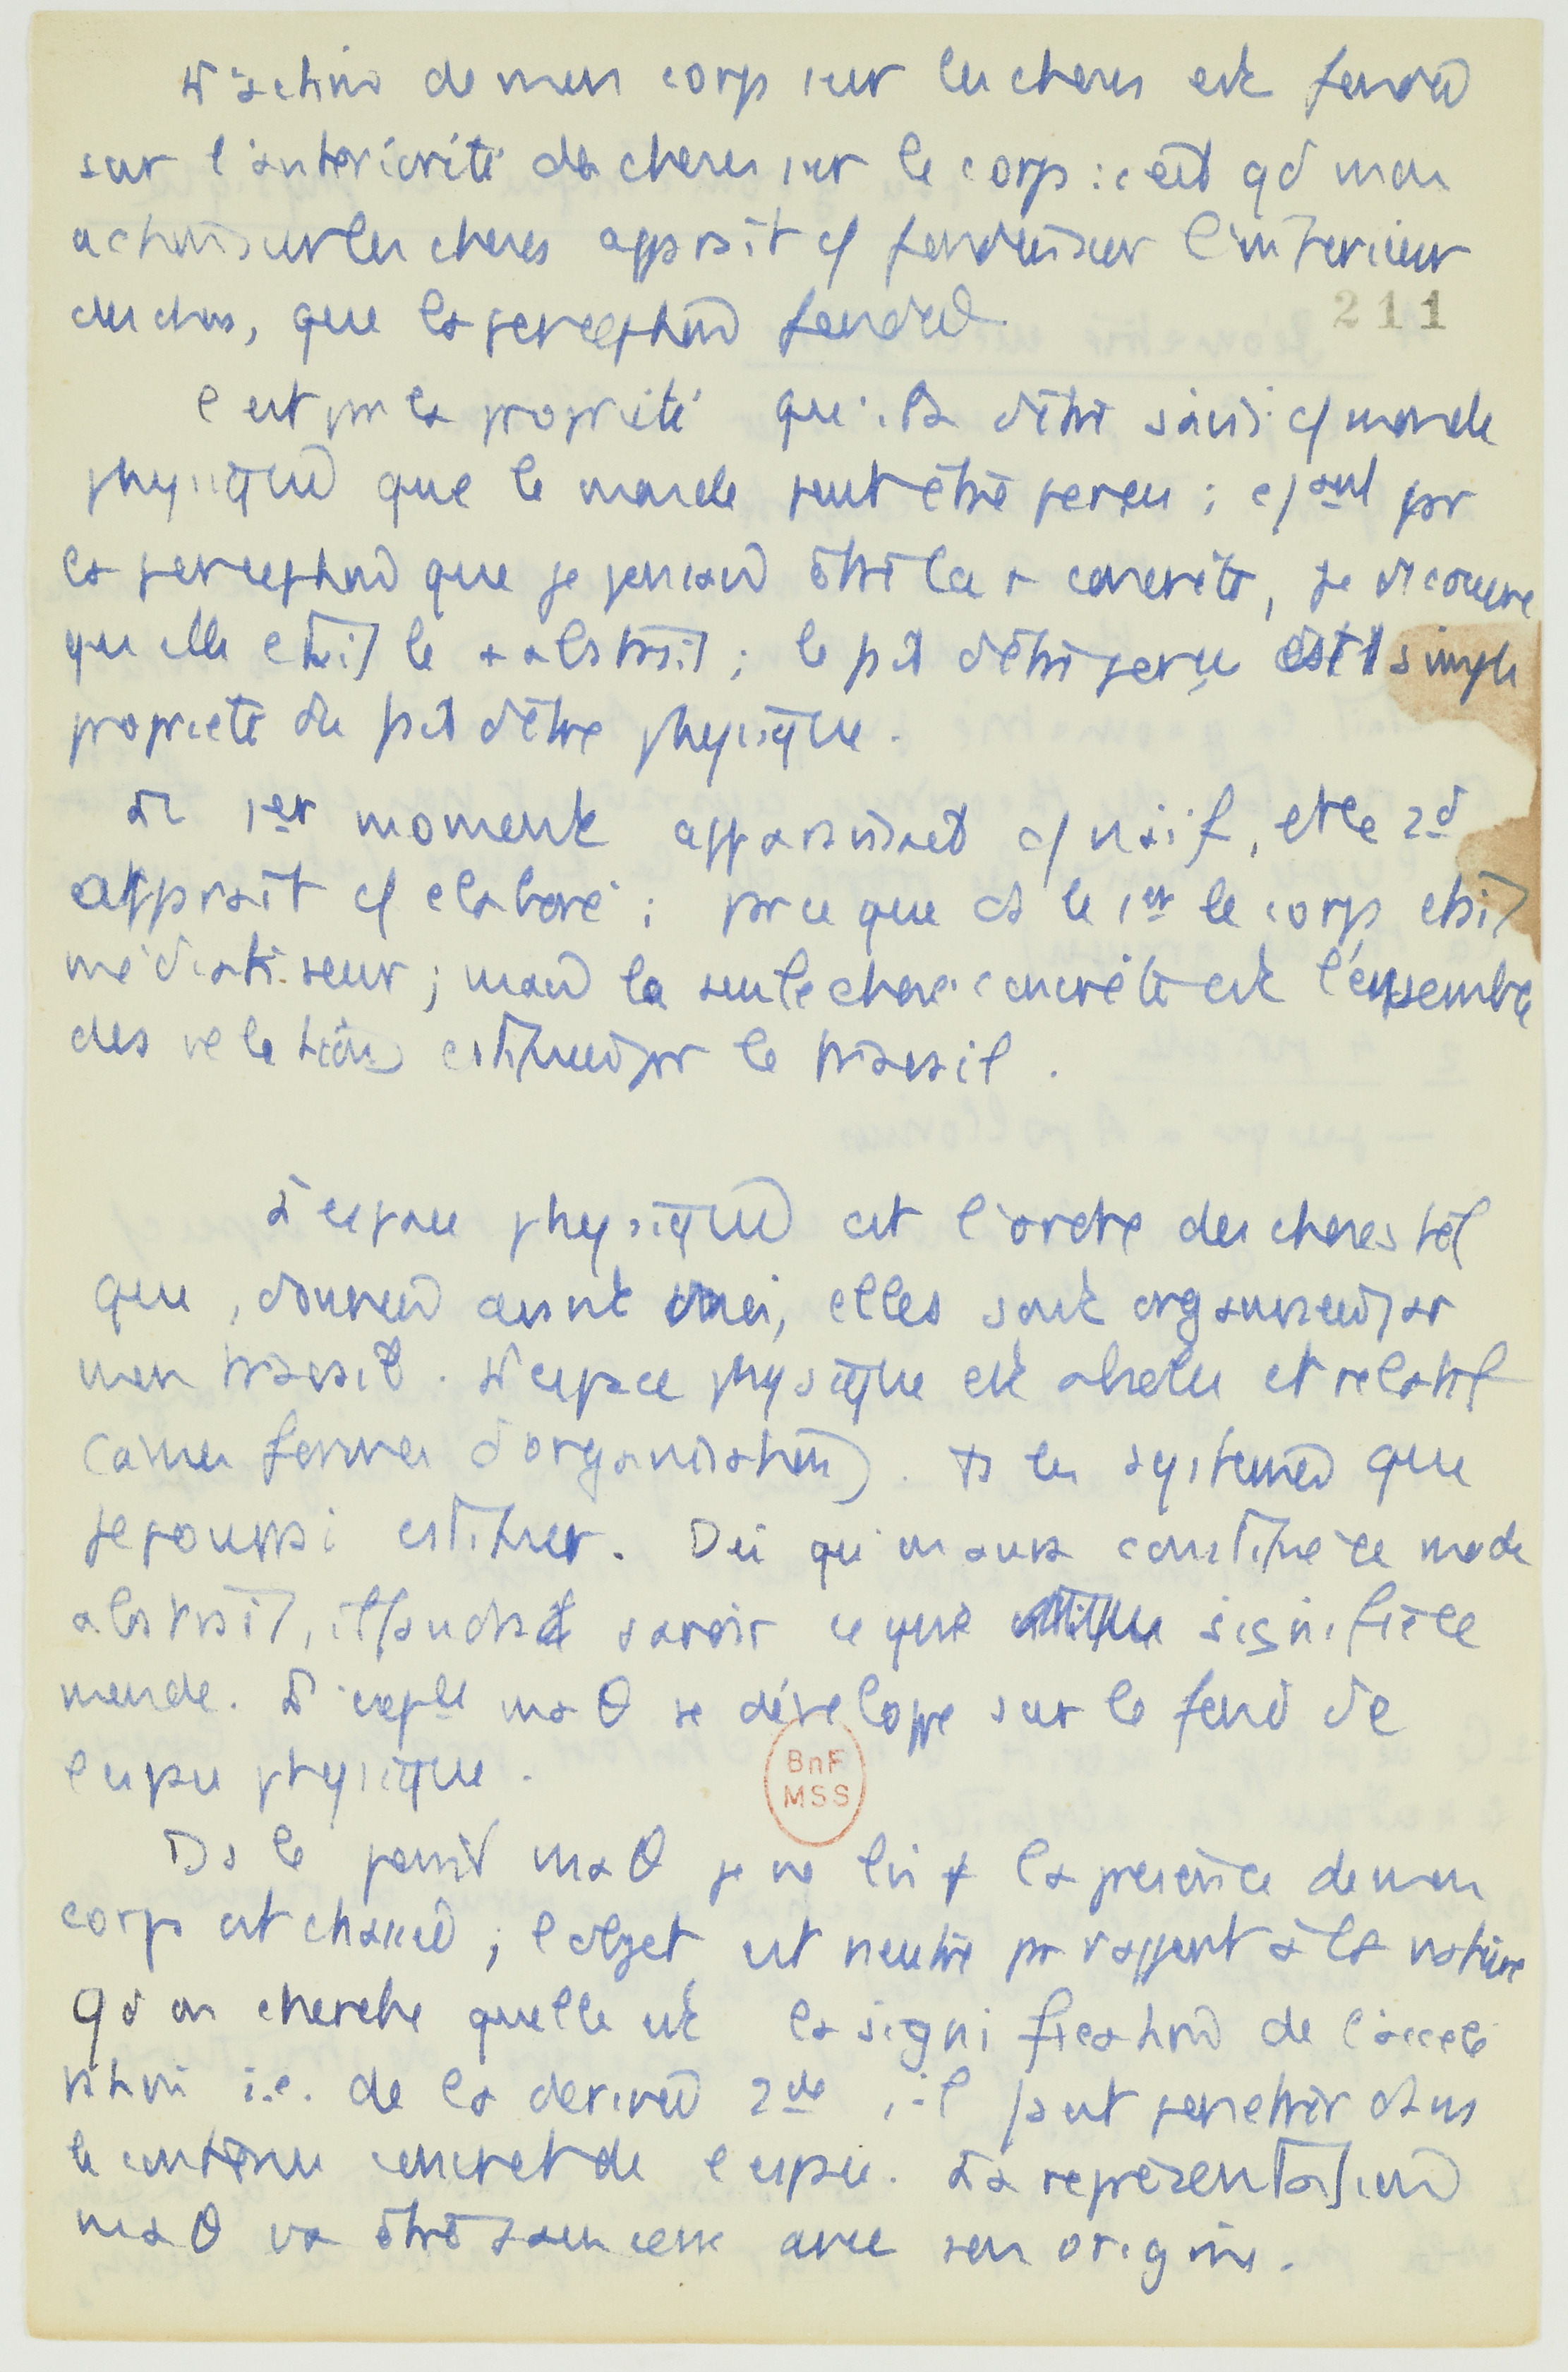 L'action de mon corps sur les choses est fondée
sur l'antériorité des choses sur le corps : c'est qd mon
action sur les choses apparaît c/ fondée sur l'intérieur
des choses, que la perception fonde
C'est par la propriété qu'il a d'être saisi c/ monde
physique que le monde peut être perçu ; c/ par
la perception que je pensais être la + concrète, je découvre
qu'elle était la + abstrait ; le fait d'être perçu est 1 simple
propriété du fait d'être physique.
Le 1er moment apparaissait c/ naïf, et le 2d
apparaît c/ élaboré ; parce que ds le 1er le corps était
médiatiseur ; mais la seule chose concrète est l'ensemble
des relations constituées par le travail.
L'espace physique est l'ordre des choses tel
que, données avant moi, elles sont organisées par
mon travail. L'espace physique est absolu et relatif
(à mes formes d'organisation). ts les systèmes que
je pourrai constituer. Dès qu'on aura constitué ce mode
abstrait, il faudra savoir ce que signifie ce
monde. L'espace maθ se développe sur le fond de
l'espace physique.
BnF
MSS
211
Ds le pensée maθ je ne lis + la présence de mon
corps est chassée ; l'objet est neutre par rapport à la nature
Qd on cherche quelle est la signification de l'accélé
ration i.e. de la dérivée 2de, il faut pénétrer dans
le contenu concret de l'espace. La représentation
maθ va être sans cesse avec son origine.